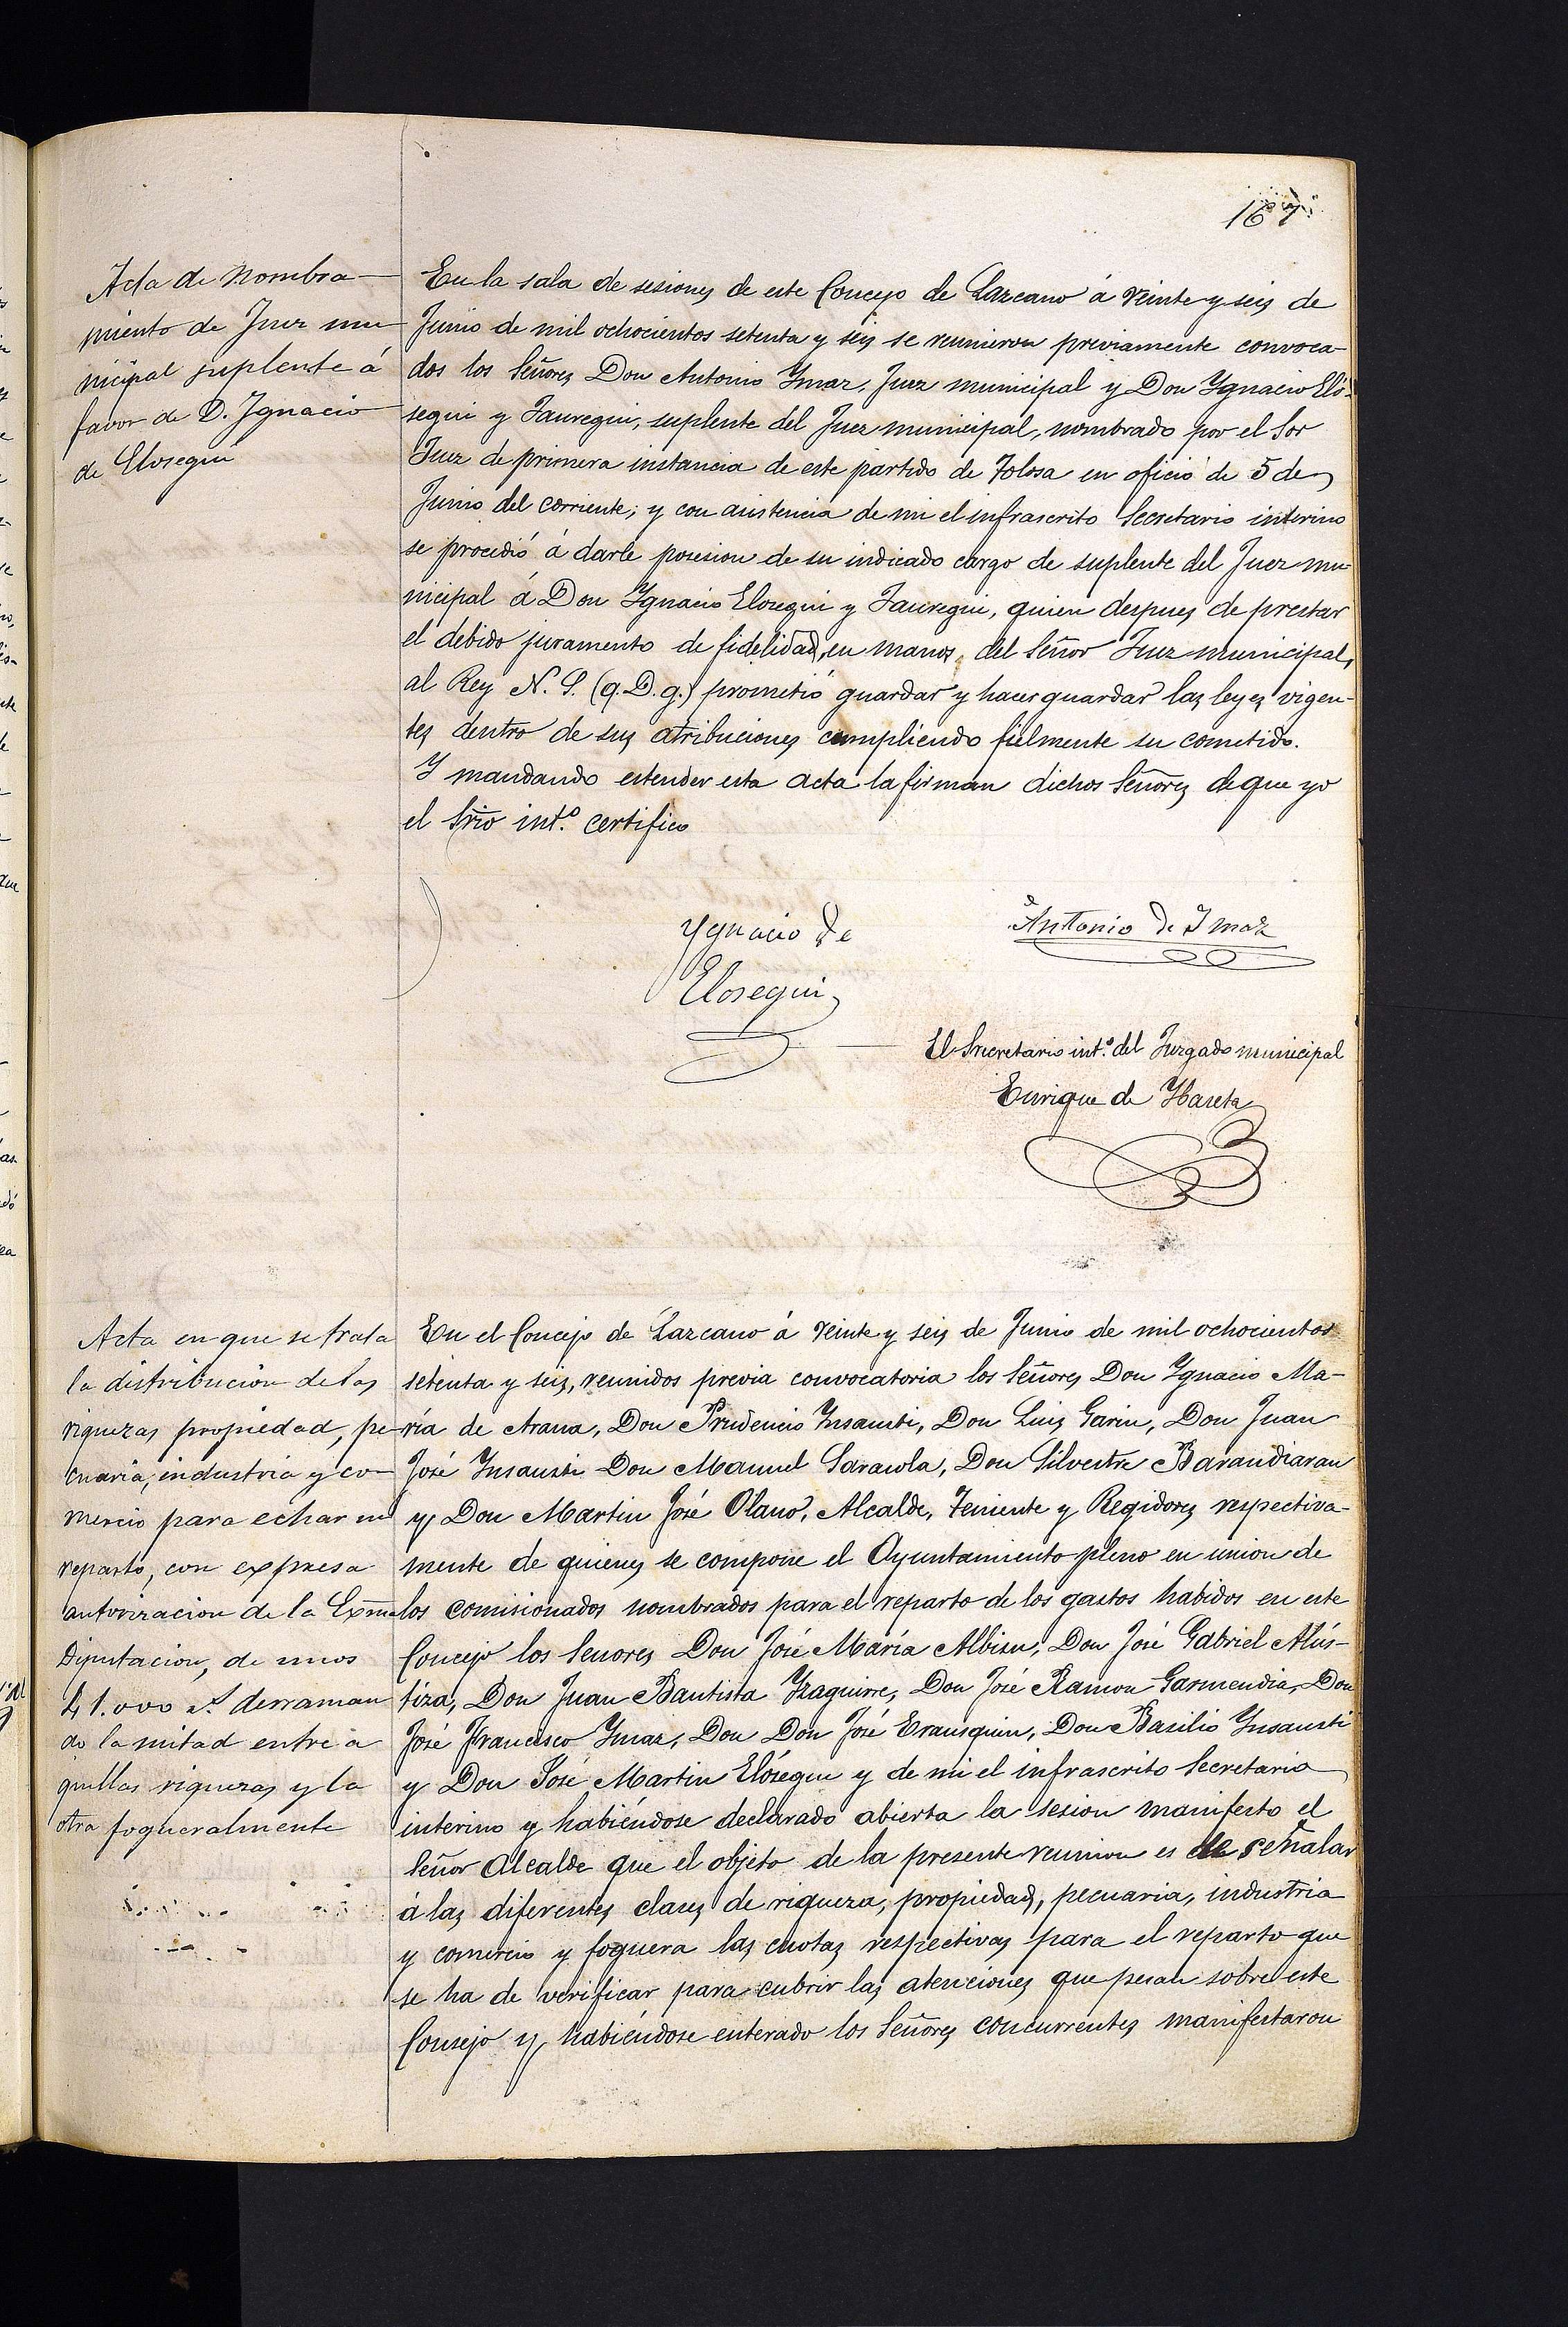 167
Acta de nombra-
miento de Juez mu-
nicipal suplente á
favor de D. Ignacio
de Elosegui
En la sala de sesiones de este Concejo de Lazcano á veinte y seis de
Junio de mil ochocientos setenta y seis se reunieron previamente convoca-
dos los Señores Don Antonio Ymaz, Juez municipal y Don Ygnacio Eló-
segui y Jauregui, suplente del Juez municipal, nombrado por el Sor
Juez de primera instancia de este partido de Tolosa en oficio de 5 de
Junio del corriente; y con asistencia de mi el infrascrito Secretario interino
se procedió á darle posesion de su indicado cargo de suplente del Juez mu-
nicipal á Don Ygnacio Elosegui y Jauregui, quien despues de prestar
el debido juramento de fidelidad, en manos del Señor Juez municipal,
al Rey N. S. (q. D. g.) prometió guardar y hacer guardar las leyes vigen-
tes dentro de sus atribuciones cumpliendo fielmente su cometido.
Y mandando estender esta acta la firman dichos Señores de que yo
el Srio int.º certifico
Ygnacio de
Elosegui
Antonio de Imaz
El Srecretario int.º del Juzgado municipal
Enrique de Ybareta
Acta en que se trata
la distribucion de las
riquezas propiedad, pe-
cuaria, industria y co-
mercio para echar un
reparto, con expresa
autorizacion de la Exma
Diputacion, de unos
41.000 rs. derraman
do la mitad entre a
quellas riquezas y la
otra fogueralmente
En el Concejo de Lazcano á veinte y seis de Junio de mil ochocientos
setenta y seis, reunidos previa convocatoria los Señores Don Ygnacio Ma-
ría de Arana, Don Prudencio Ynsausti, Don Luis Garin, Don Juan
José Ynsausti Don Manuel Sarasola, Don Silvestre Barandiaran
y Don Martin José Olano, Alcalde, Teniente y Regidores respectiva-
mente de quienes se compone el Ayuntamiento pleno en union de
los comisionados nombrados para el reparto de los gastos habidos en este
Concejo los Senores Don José María Albisu, Don José Gabriel Alús-
tiza, Don Juan Bautista Yzaguirre, Don José Ramon Garmendia, Don
José Francisco Ymaz, Don Don José Erausquin, Don Basilio Ynsausti
y Don José Martin Elósegui y de mi el infrascrito Secretario
interino y habiéndose declarado abierta la sesion manifesto el
Señor Alcalde que el objeto de la presente reunion es de señalar
á las diferentes clases de riqueza, propiedad, pecuaria, industria
y comercio y foguera las cuotas respectivas para el reparto que
se ha de verificar para cubrir las atenciones que pesan sobre este
Consejo y habiéndose enterado los Señores concurrentes manifestaron